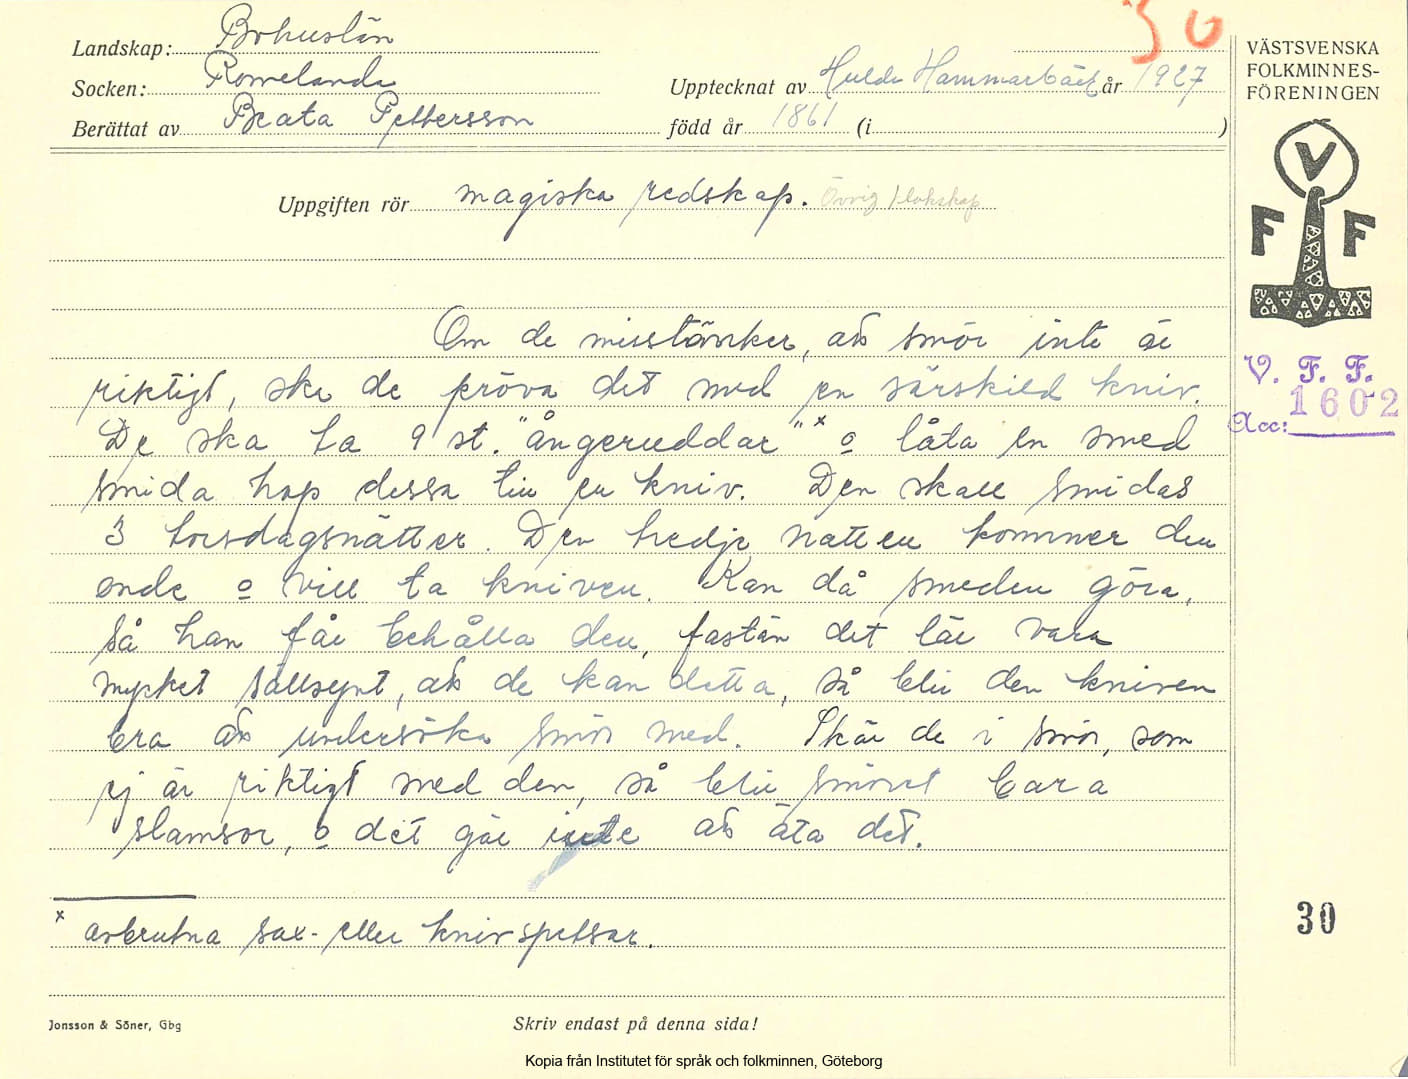 30
Landskap: Bohuslän
Socken: Romelanda
Upptecknat av Hulda Hammarbäck år 1927
Berättat av Beata Pettersson
född år 1861 (i )
VÄSTSVENSKA
FOLKMINNES-
FÖRENINGEN
V
F F
Uppgiften rör magiska redskap. Övrig klokskap
Om de misstänker, att smör inte är
riktigt, ska de pröva det med en särskild kniv.
De ska ta 9 st. "ångeruddar" x o låta en smed
smida hop dessa till en kniv. Den skall smidas
3 torsdagsnätter. Den tredje natten kommer den
onde o vill ta kniven. Kan då smeden göra,
så han får behålla den, fastän det lär vara
mycket sällsynt, att de kan detta, så blir den kniven
bra att undersöka smör med. Skär de i smör, som
ej är riktigt med den, så blir smöret bara
slamsor, o det går inte att äta det.
x avbrutna sax- eller knivspetsar.
V. F. F.
1602
Acc:
30
Jonsson & Söner, Gbg
Skriv endast på denna sida!
Kopia från Institutet för språk och folkminnen, Göteborg